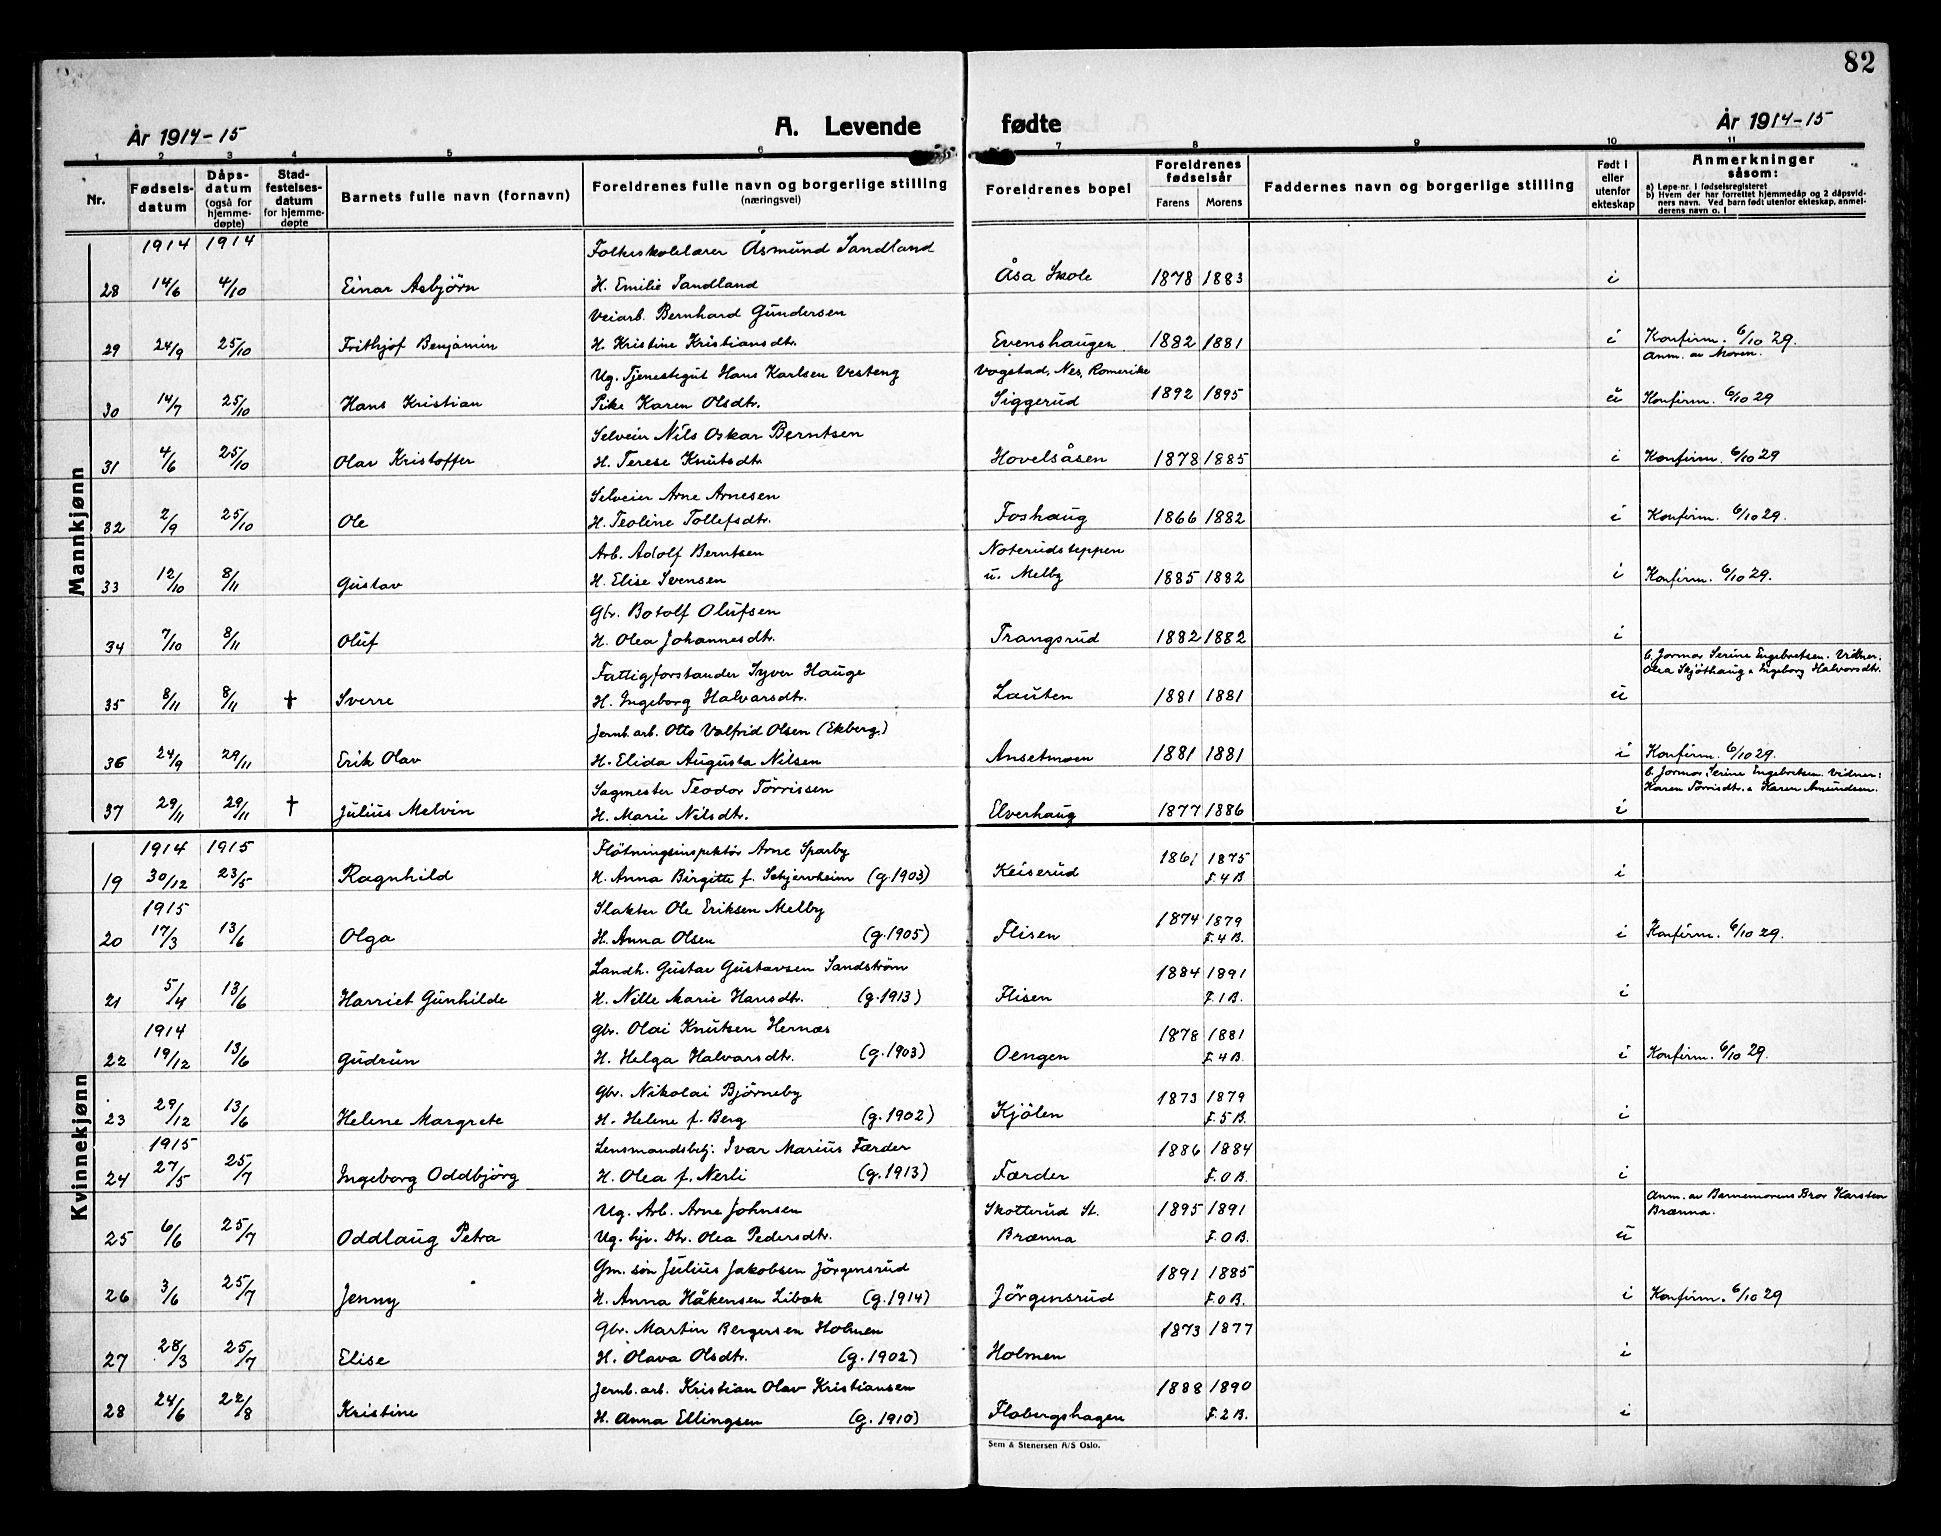 82
År 1914-15
A. Levende fødte
År 1914-15
1 2 3 4 5 6 7 8 9 10 11
Nr.
Fødselsdatum
Dåpsdatum (også for hjemmedøpte)
Stadfestelsesdatum for hjemmedøpte
Barnets fulle navn (fornavn)
Foreldrenes fulle navn og borgerlige stilling (næringsvei)
Foreldrenes bopel
Foreldrenes fødselsår
Farens Morens
Faddernes navn og borgerlige stilling
Født i eller utenfor ekteskap
Anmerkninger såsom:
a) Løpe-nr. i fødselsregisteret
b) Hvem der har forrettet hjemmedåp og 2 dåpsvidners navn. Ved barn født utenfor ekteskap, anmelderens navn o. l
Mannkjønn
1914 1914 Folkeskolelærer Åsmund Sandland
28 14/6 4/10 Einar Asbjørn H. Emilie Sandland Åsa Skole 1878 1883 i
Veiarb. Bernhard Gundersen
29 24/9 25/10 Frithjof Benjamin H. Kristine Kristiansdtr. Evenshaugen 1882 1881 i Konfirm. 6/10 29.
Ug. Tjenestegut Hans Karlsen Vesteng Vogstad, Nes, Romerike Anm. av Moren.
30 14/7 25/10 Hans Kristian Pike Karen Olsdtr. Siggerud 1892 1895 u Konfirm. 6/10 29
Selveier Nils Oskar Berntsen
31 4/6 25/10 Olav Kristoffer H. Terese Knutsdtr. Hovelsåsen 1878 1885 i Konfirm. 6/10 29
Selveier Arne Arnesen
32 2/9 25/10 Ole H. Teoline Tollefsdtr. Foshaug 1866 1882 i Konfirm. 6/10 29.
Arb. Adolf Berntsen Noterudsteppen
33 12/10 8/11 Gustav H. Elise Svensen u. Melby 1885 1882 i Konfirm. 6/10 29.
Gbr. Botolf Olufsen
34 7/10 8/11 Oluf H. Olea Johannesdtr. Trangsrud 1882 1882 i
Fattigforstander Syver Hauge b. Jormor Serine Engebretsen. Vidner:
Olea Skjöthaug & Ingeborg Halvorsdtr.
35 8/11 8/11 † Sverre H. Ingeborg Halvarsdtr. Lauten 1881 1881 u
Jernb. arb. Otto Valfrid Olsen (Ekberg)
36 24/9 29/11 Erik Olav H. Elida Augusta Nilsen Ansetmoen 1881 1881 i Konfirm. 6/10 29.
Sagmester Teodor Törrissen b. Jormor Serine Engebretsen. Vidner:
Karen Törrisdtr. & Karen Amundsen.
37 29/11 29/11 † Julius Melvin H. Marie Nilsdtr. Elverhaug 1877 1886 i
Kvinnekjønn
1914 1915 Flötningsinspektör Arne Sparby 1861 1875
19 30/12 23/5 Ragnhild H. Anna Birgitte f. Schjervheim (g. 1903) Keiserud F. 4 B. i
1915 Slakter Ole Eriksen Melby 1874 1879
20 17/3 13/6 Olga H. Anna Olsen (g. 1905) Flisen F. 4 B. i Konfirm. 6/10 29.
Landh. Gustav Gustavsen Sandström 1884 1891
21 5/4 13/6 Harriet Gunhilde H. Nille Marie Hansdtr. (g. 1913) Flisen F. 1 B. i
1914 Gbr. Olai Knutsen Hernæs 1878 1881
22 19/12 13/6 Gudrun H. Helga Halvarsdtr. (g. 1903) Oengen F. 4 B. i Konfirm. 6/10 29.
Gbr. Nikolai Björneby 1873 1879
23 29/12 13/6 Helene Margrete H. Helene f. Berg (g. 1902) Kjölen F. 5 B. i
1915 Lensmandsbetj. Ivar Marius Færder 1886 1884
24 27/5 25/7 Ingeborg Oddbjörg H. Olea f. Nerli (g. 1913) Færder F. 0 B. i
Ug. Arb. Arne Johnsen Skotterud St. 1895 1891 Anm. av Barnemorens Bror Karsten
Brænna.
25 6/6 25/7 Oddlaug Petra Ug. hjv. Dtr. Olea Pedersdtr. Brænna F. 0 B. u
Gm. søn Julius Jakobsen Jörgensrud 1891 1885
26 3/6 25/7 Jenny H. Anna Håkensen Libak (g. 1914) Jörgensrud F. 0 B. i Konfirm. 6/10 29
Gbr. Martin Bergersen Holmen 1873 1877
27 28/3 25/7 Elise H. Olava Olsdtr. (g. 1902) Holmen i
Jernb. arb. Kristian Olav Kristiansen 1888 1890
28 24/6 22/8 Kristine H. Anna Ellingsen (g. 1910) Flobergshagen F. 2 B. i
Sem & Stenersen A/S Oslo.